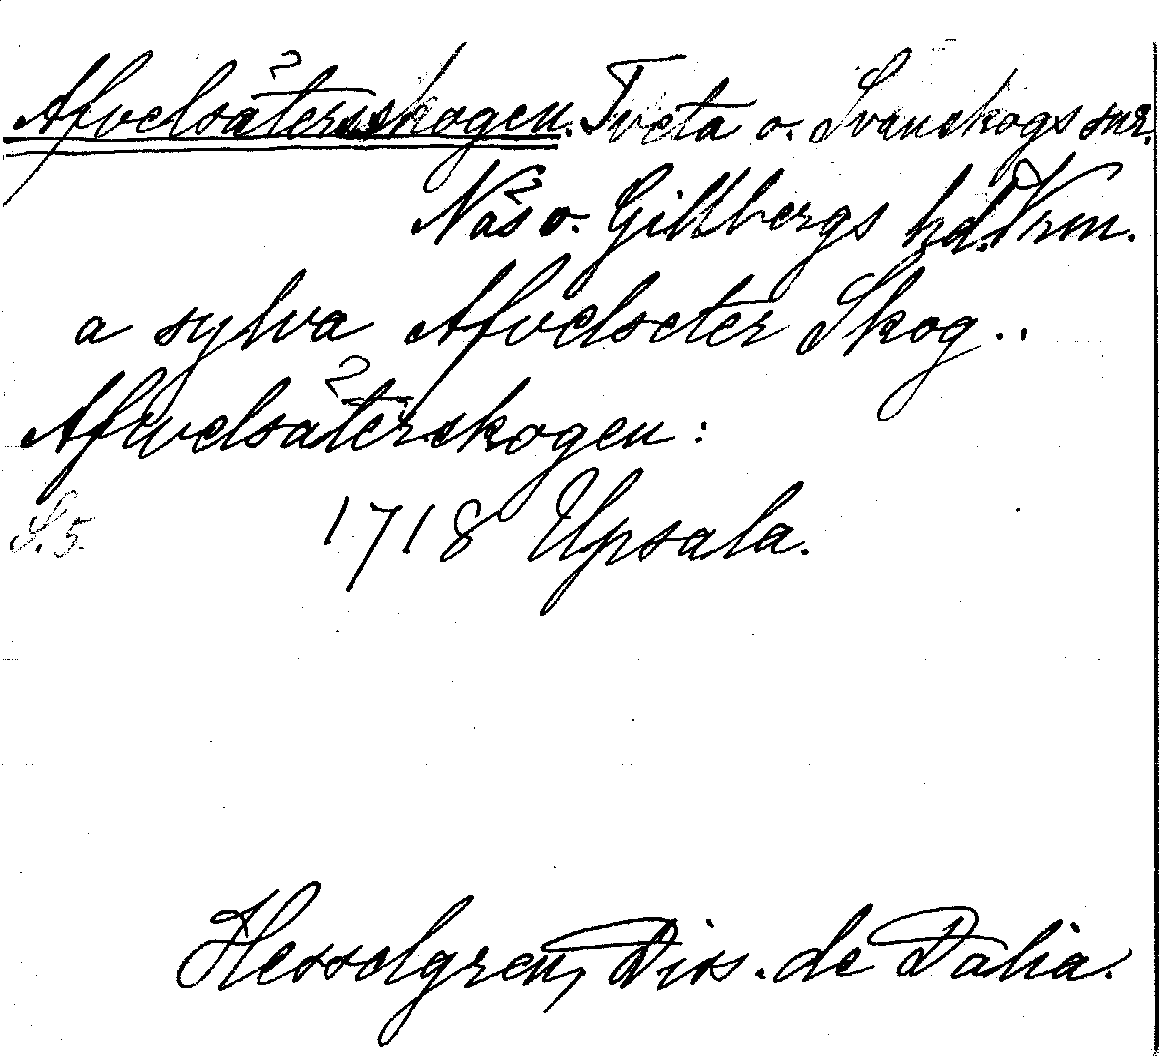 Afvelsätersskogen. Tveta o. Svanskogs snr.
Näs o. Gillbergs hd. Vrm.
a sylva Afvelseter Skog..
Afwelsäterskogen:
S. 5. 1718 Upsala.
Hesselgren, Diss. de Dalia.